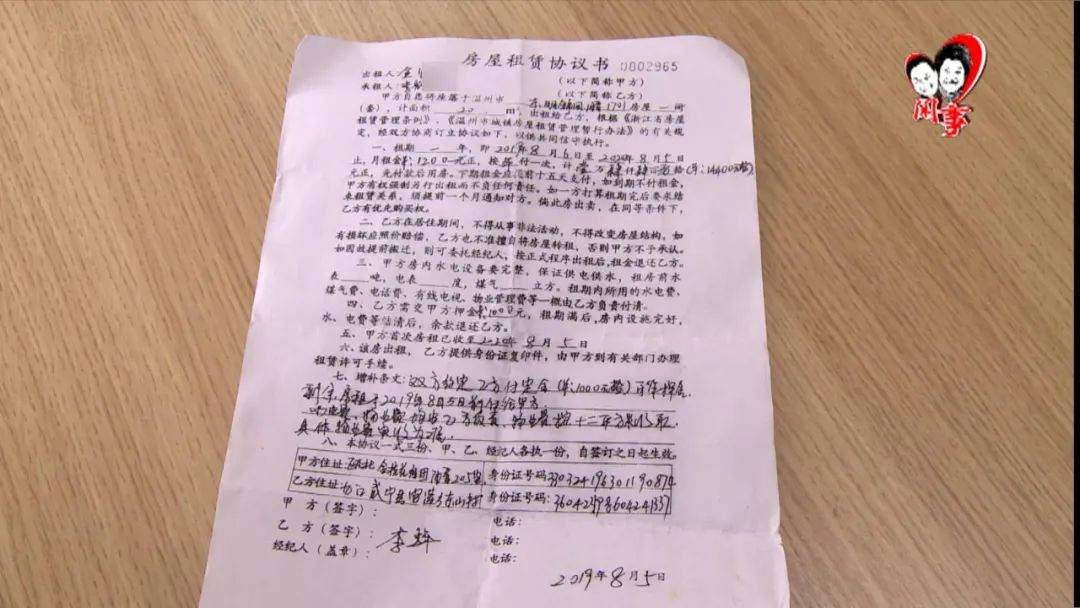 房屋租赁协议书 0002965
出租人: (以下简称甲方)
承租人: (以下简称乙方)
甲方自愿将座落于温州市 1701房屋一间
(套),计面积 20 m²,出租给乙方,根据《浙江省房屋
租赁管理条例》、《温州市城镇房屋租赁管理暂行办法》的有关规
定,经双方协商订立协议如下,以供共同信守执行。
一、租期一年,即2019年8月6日至2020年8月5日
止,月租金¥:1200元正,按年付一次,计壹万肆仟肆百 (¥:14400元整)
元正,先付款后用房。下期租金应 前十五天支付,如到期不付租金,
甲方有权强制另行出租而不负任何责任。如一方打算租期完后要求结
束租赁关系,须提前一个月通知对方。倘此房出卖,在同等条件下,
乙方有优先购买权。
二、乙方在居住期间,不得从事非法活动,不得改变房屋结构,如
有损坏应照价赔偿,乙方也不准擅自将房屋转租,否则甲方不予承认。
如因故提前搬迁,则可委托经纪人,按正式程序出租后,租金退还乙方。
三、甲方房内水电设备要完整,保证供电供水,租房前水
表 吨,电表 度,煤气 立方。租期内所用的水电费、
煤气费、电话费、有线电视、物业管理费等一概由乙方负责付清。
四、乙方需交甲方押金¥:1000元,租期满后,房内设施完好,
水、电费等结清后,余款退还乙方。
五、甲方首次房租已收至2020年8月5日
六、该房出租,乙方提供身份证复印件,由甲方到有关部门办理
租赁许可手续。
七、增补条文:双方约定乙方付定金(¥:1000元整)可作押金
剩余房租于2019年8月5日前付给甲方
物业费 乙方 物业费按十二平方米收取
具体 收为准.
八、本协议一式三份、甲、乙、经纪人各执一份,自签订之日起生效。
甲方住址: 205 身份证号码:330324196301190874
乙方住址: 武宁县 村 身份证号码:
甲 方(签字): 电话:
乙 方(签字): 李 电话:
经纪人(盖章): 电话:
2019年8月5日
闲事